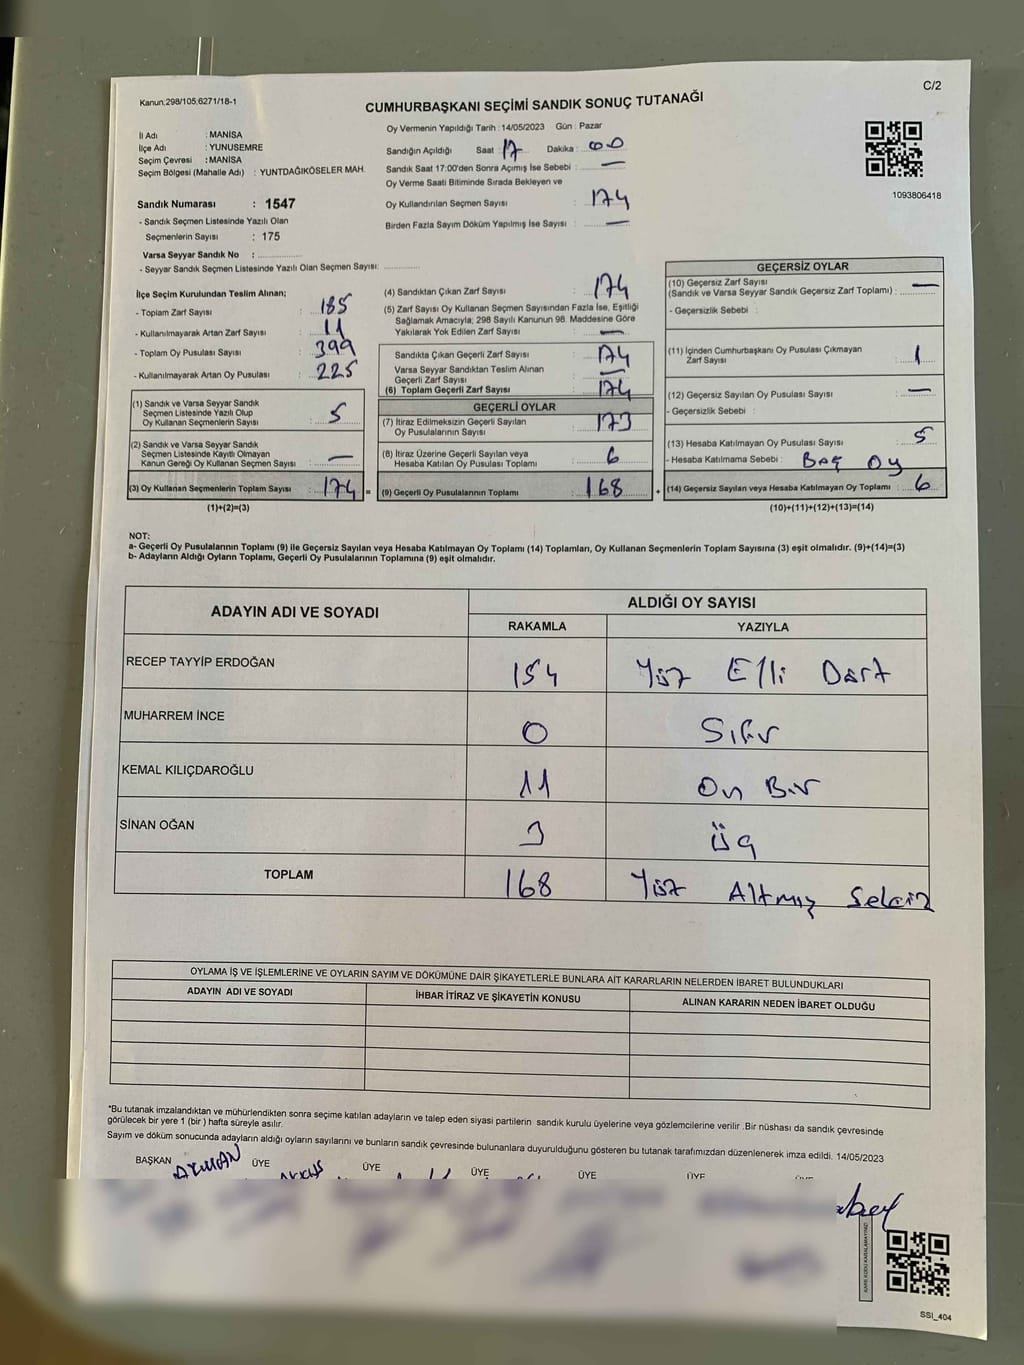 Kanun;298/105,6271/18-1
C/2
CUMHURBAŞKANI SEÇİMİ SANDIK SONUÇ TUTANAĞI
İl Adı : MANİSA
İlçe Adı : YUNUSEMRE
Seçim Çevresi : MANİSA
Seçim Bölgesi (Mahalle Adı) : YUNTDAĞIKÖSELER MAH.
Sandık Numarası : 1547
- Sandık Seçmen Listesinde Yazılı Olan
Seçmenlerin Sayısı : 175
Varsa Seyyar Sandık No :
- Seyyar Sandık Seçmen Listesinde Yazılı Olan Seçmen Sayısı:
Oy Vermenin Yapıldığı Tarih : 14/05/2023 Gün : Pazar
Sandığın Açıldığı Saat : 17 Dakika : 00
Sandık Saat 17:00'den Sonra Açımış İse Sebebi : —
Oy Verme Saati Bitiminde Sırada Bekleyen ve
Oy Kullandırılan Seçmen Sayısı : 174
Birden Fazla Sayım Döküm Yapılmış İse Sayısı : —
1093806418
İlçe Seçim Kurulundan Teslim Alınan;
- Toplam Zarf Sayısı : 185
- Kullanılmayarak Artan Zarf Sayısı : 11
- Toplam Oy Pusulası Sayısı : 399
- Kullanılmayarak Artan Oy Pusulası : 225
(1) Sandık ve Varsa Seyyar Sandık
Seçmen Listesinde Yazılı Olup
Oy Kullanan Seçmenlerin Sayısı : 5
(2) Sandık ve Varsa Seyyar Sandık
Seçmen Listesinde Kayıtlı Olmayan
Kanun Gereği Oy Kullanan Seçmen Sayısı : —
(3) Oy Kullanan Seçmenlerin Toplam Sayısı : 174 =
(1)+(2)=(3)
(4) Sandıktan Çıkan Zarf Sayısı : 174
(5) Zarf Sayısı Oy Kullanan Seçmen Sayısından Fazla İse, Eşitliği
Sağlamak Amacıyla; 298 Sayılı Kanunun 98. Maddesine Göre
Yakılarak Yok Edilen Zarf Sayısı : —
Sandıkta Çıkan Geçerli Zarf Sayısı : 174
Varsa Seyyar Sandıktan Teslim Alınan
Geçerli Zarf Sayısı : —
(6) Toplam Geçerli Zarf Sayısı : 174
GEÇERLİ OYLAR
(7) İtiraz Edilmeksizin Geçerli Sayılan
Oy Pusulalarının Sayısı : 173
(8) İtiraz Üzerine Geçerli Sayılan veya
Hesaba Katılan Oy Pusulası Toplamı : 6
(9) Geçerli Oy Pusulalarının Toplamı : 168 +
GEÇERSİZ OYLAR
(10) Geçersiz Zarf Sayısı
(Sandık ve Varsa Seyyar Sandık Geçersiz Zarf Toplamı) : —
- Geçersizlik Sebebi :
(11) İçinden Cumhurbaşkanı Oy Pusulası Çıkmayan
Zarf Sayısı : 1
(12) Geçersiz Sayılan Oy Pusulası Sayısı : —
- Geçersizlik Sebebi :
(13) Hesaba Katılmayan Oy Pusulası Sayısı : 5
- Hesaba Katılmama Sebebi : Boş Oy
(14) Geçersiz Sayılan veya Hesaba Katılmayan Oy Toplamı : 6
(10)+(11)+(12)+(13)=(14)
NOT:
a- Geçerli Oy Pusulalarının Toplamı (9) ile Geçersiz Sayılan veya Hesaba Katılmayan Oy Toplamı (14) Toplamları, Oy Kullanan Seçmenlerin Toplam Sayısına (3) eşit olmalıdır. (9)+(14)=(3)
b- Adayların Aldığı Oyların Toplamı, Geçerli Oy Pusulalarının Toplamına (9) eşit olmalıdır.
ADAYIN ADI VE SOYADI
ALDIĞI OY SAYISI
RAKAMLA YAZIYLA
RECEP TAYYİP ERDOĞAN 154 Yüz Elli Dört
MUHARREM İNCE 0 Sıfır
KEMAL KILIÇDAROĞLU 11 On Bir
SİNAN OĞAN 3 üç
TOPLAM 168 Yüz Altmış Sekiz
OYLAMA İŞ VE İŞLEMLERİNE VE OYLARIN SAYIM VE DÖKÜMÜNE DAİR ŞİKAYETLERLE BUNLARA AİT KARARLARIN NELERDEN İBARET BULUNDUKLARI
ADAYIN ADI VE SOYADI İHBAR İTİRAZ VE ŞİKAYETİN KONUSU ALINAN KARARIN NEDEN İBARET OLDUĞU
*Bu tutanak imzalandıktan ve mühürlendikten sonra seçime katılan adayların ve talep eden siyasi partilerin sandık kurulu üyelerine veya gözlemcilerine verilir .Bir nüshası da sandık çevresinde
görülecek bir yere 1 (bir ) hafta süreyle asılır.
Sayım ve döküm sonucunda adayların aldığı oyların sayılarını ve bunların sandık çevresinde bulunanlara duyurulduğunu gösteren bu tutanak tarafımızdan düzenlenerek imza edildi. 14/05/2023
BAŞKAN ÜYE ÜYE ÜYE ÜYE ÜYE
SSI_404